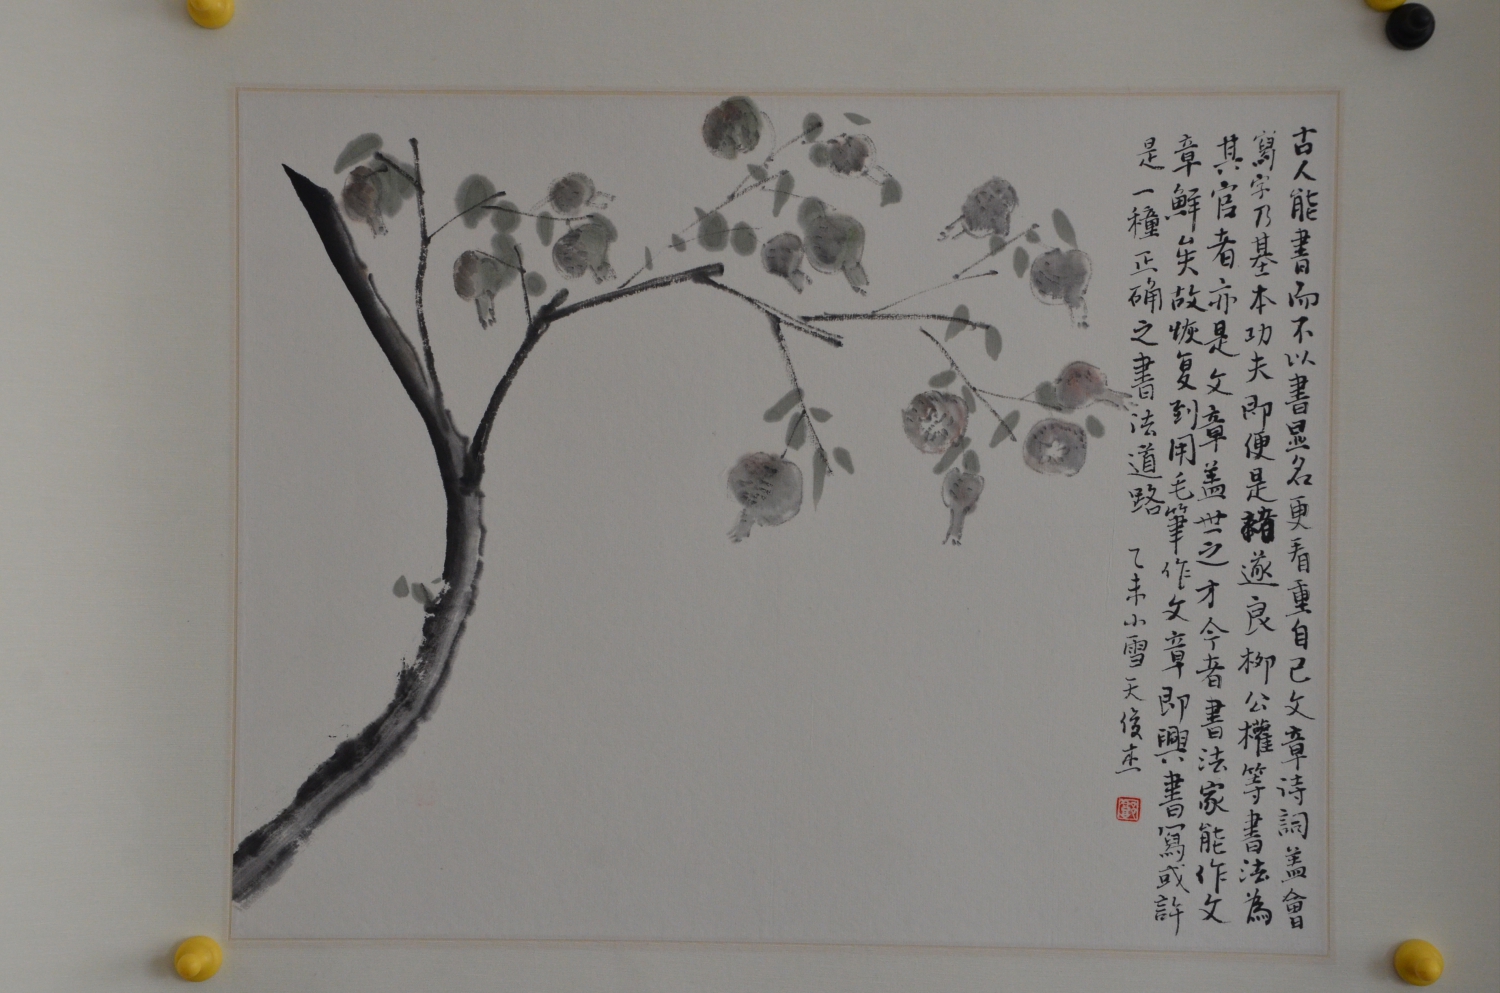 古人能書而不以書显名更看重自己文章诗詞盖會
寫字乃基本功夫即便是褚遂良柳公權等書法為
其官者亦是文章盖世之才今者書法家能作文
章鮮矣故恢复到用毛筆作文章即興書寫或許
是一種正确之書法道路 乙未小雪天俊杰